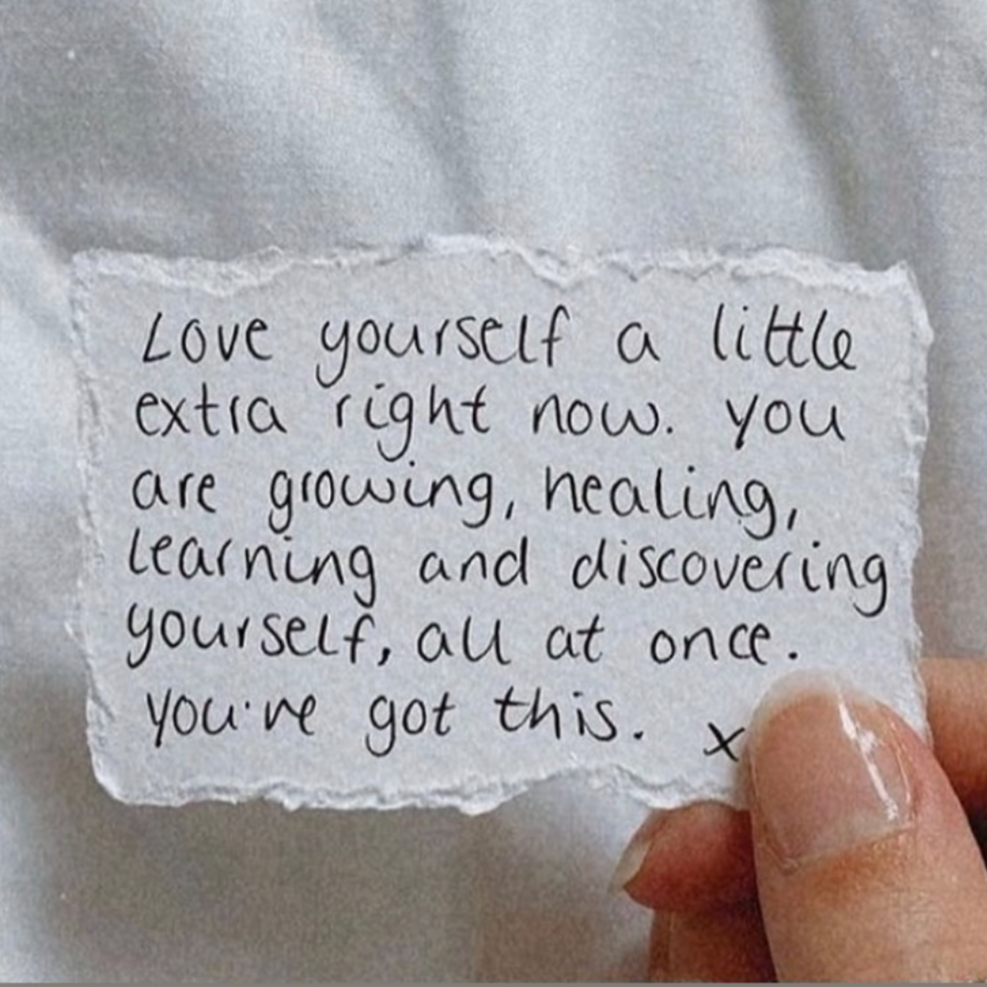 Love yourself a little
extra right now. you
are growing, healing,
learning and discovering
yourself, all at once.
you've got this. x